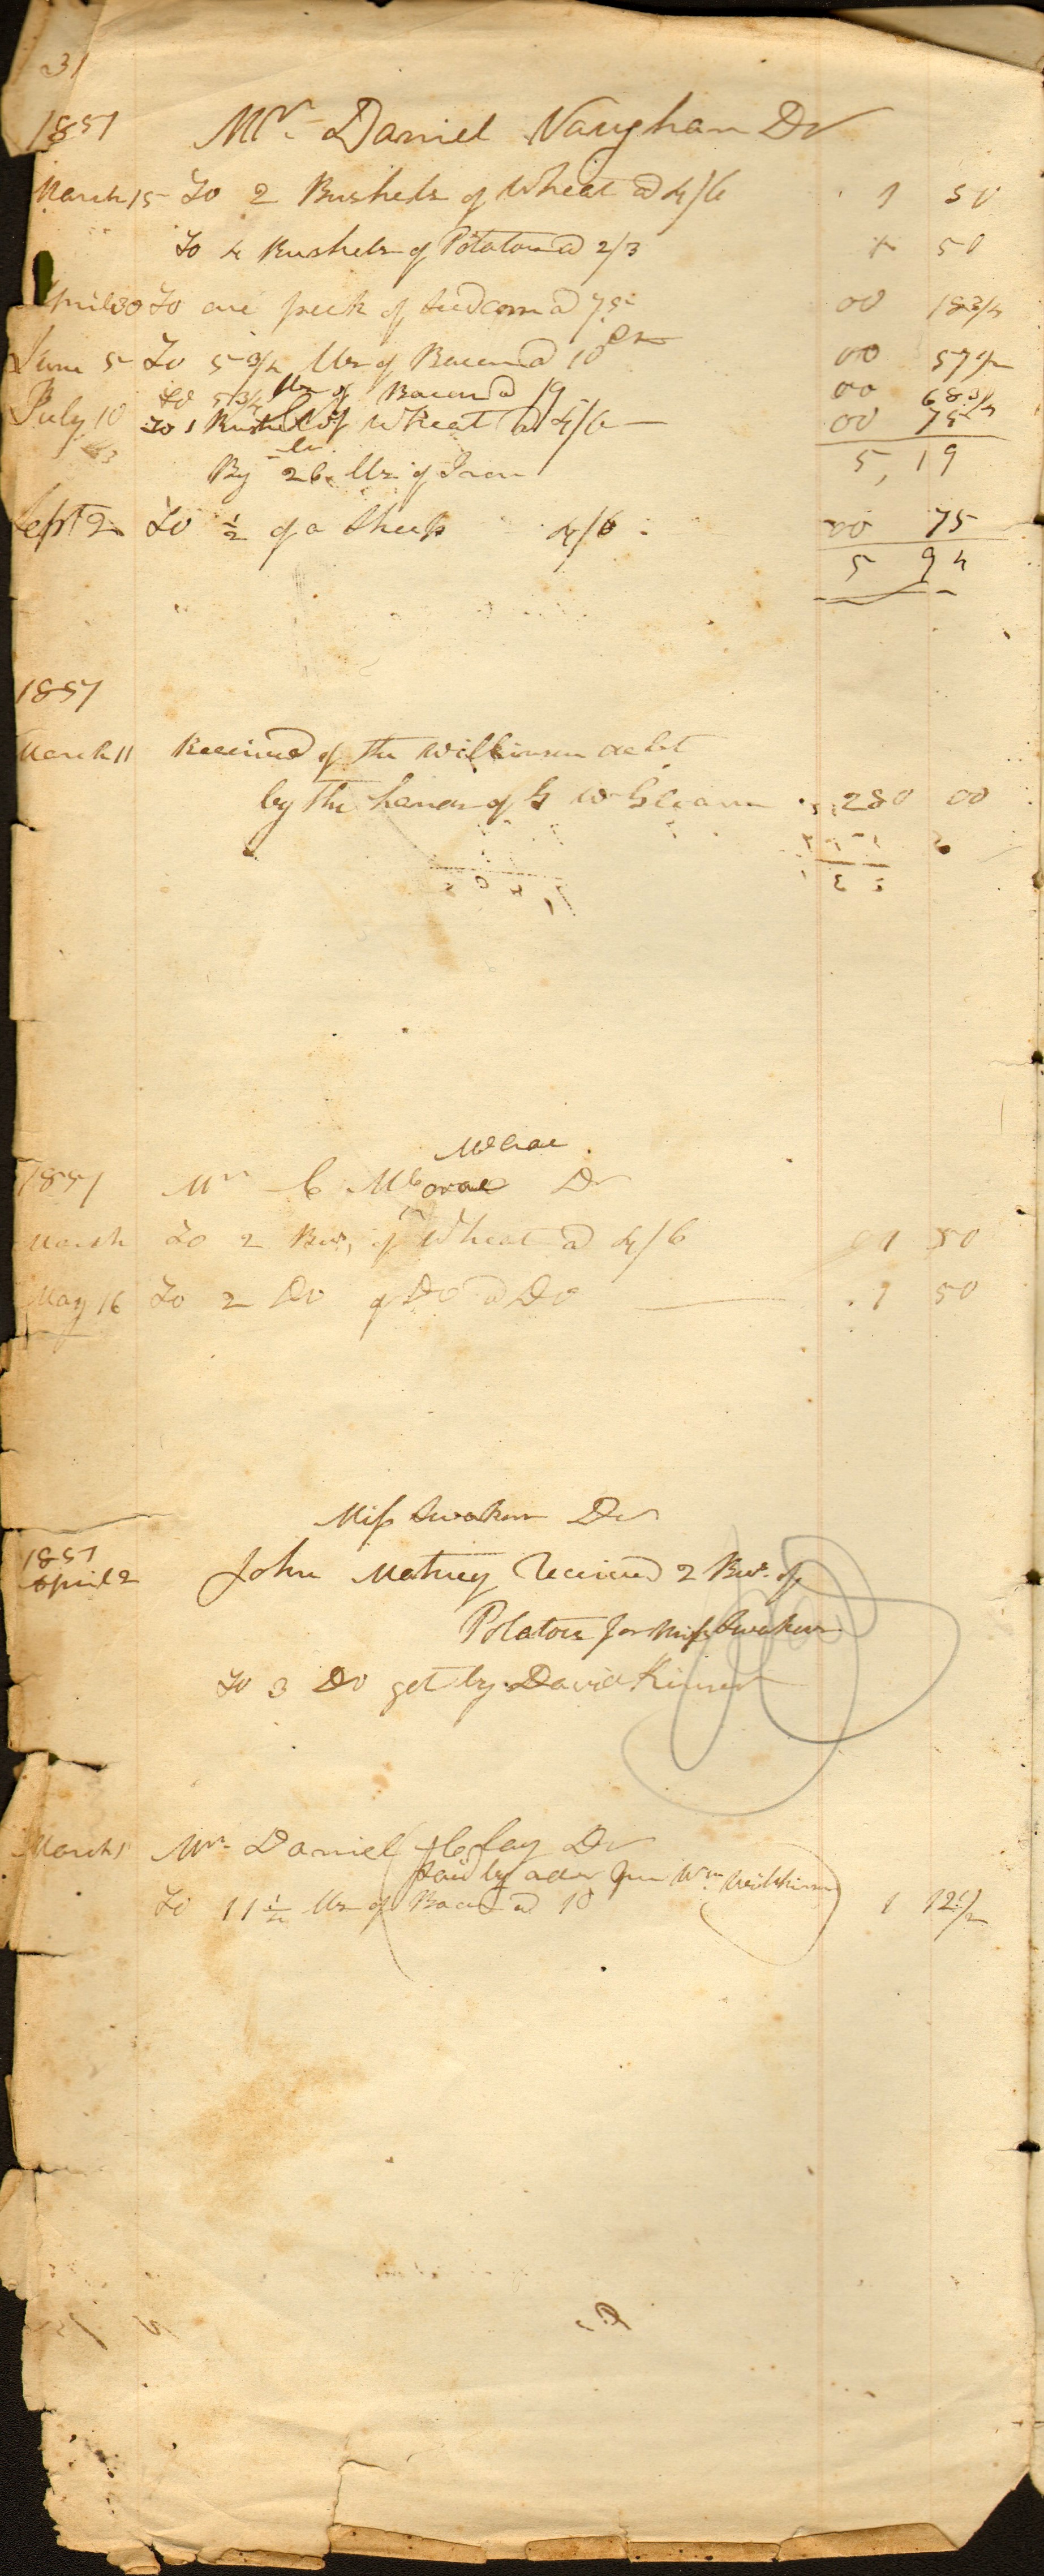 31
1851 Mr. Daniel Vaughan Dr
March 15 To 2 Bushels of Wheat @ 4/6 1 50
To 4 Bushels of Potatoes @ 2/3 1 50
April 30 To one peck of seed corn @ 75 00 18 3/4
June 5 To 5 3/4 lbs of Bacon @ 10 00 57 1/2
To 5 3/4 lbs of Bacon @ 00 68 3/4
July 10 To 1 Bushel of Wheat @ 4/6 00 75
5,19
By 26 lbs of Iron
Sept 2 To 1/2 of a Sheep 4/6 00 75
5 94
1851
March 11 Received of the Wilkinson debt
by the hands of G W 280 00
McCrae
1851 Mr C Dr
March To 2 Bus, of Wheat @ 4/6 1 50
May 16 To 2 Do of Do @ Do 1 50
Miss Dr
1851
April 2 John received 2 Bus. of
Potatoes for Miss
To 3 Do got by David
March 1 Mr. Daniel Dr
paid by order Wm.
To 11 1/4 lbs of Bacon @ 10 1 12 1/2